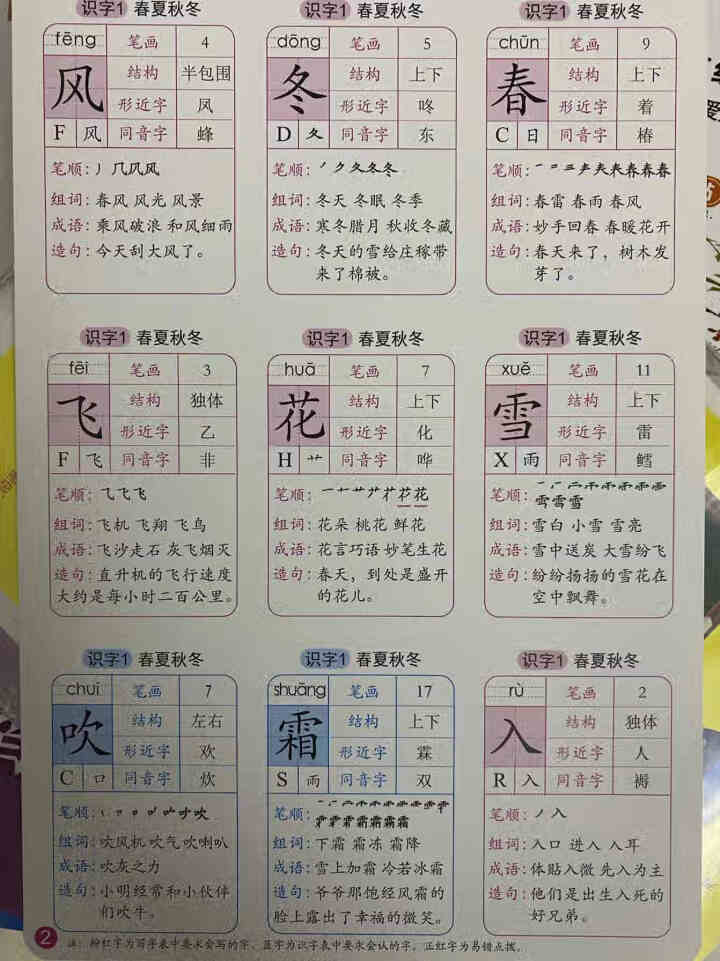 识字1 春夏秋冬
fēng 笔画 4
风 结构 半包围
形近字 凤
F 风 同音字 蜂
笔顺：丿 几 风 风
组词：春风 风光 风景
成语：乘风破浪 和风细雨
造句：今天刮大风了。
识字1 春夏秋冬
dōng 笔画 5
冬 结构 上下
形近字 咚
D 夂 同音字 东
笔顺：丿 ク 夂 冬 冬
组词：冬天 冬眠 冬季
成语：寒冬腊月 秋收冬藏
造句：冬天的雪给庄稼带
来了棉被。
识字1 春夏秋冬
chūn 笔画 9
春 结构 上下
形近字 着
C 日 同音字 椿
笔顺：一 二 三 夫 春 春 春
组词：春雷 春雨 春风
成语：妙手回春 春暖花开
造句：春天来了，树木发
芽了。
识字1 春夏秋冬
fēi 笔画 3
飞 结构 独体
形近字 乙
F 飞 同音字 非
笔顺：乁 飞 飞
组词：飞机 飞翔 飞鸟
成语：飞沙走石 灰飞烟灭
造句：直升机的飞行速度
大约是每小时二百公里。
识字1 春夏秋冬
huā 笔画 7
花 结构 上下
形近字 化
H 艹 同音字 哗
笔顺：一 十 艹 花 花
组词：花朵 桃花 鲜花
成语：花言巧语 妙笔生花
造句：春天，到处是盛开
的花儿。
识字1 春夏秋冬
xuě 笔画 11
雪 结构 上下
形近字 雷
X 雨 同音字 鳕
笔顺：
雪 雪 雪
组词：雪白 小雪 雪亮
成语：雪中送炭 大雪纷飞
造句：纷纷扬扬的雪花在
空中飘舞。
识字1 春夏秋冬
chuī 笔画 7
吹 结构 左右
形近字 欢
C 口 同音字 炊
笔顺：丨 口 口 吹
组词：吹风机 吹气 吹喇叭
成语：吹灰之力
造句：小明经常和小伙伴
们吹牛。
识字1 春夏秋冬
shuāng 笔画 17
霜 结构 上下
形近字 霖
S 雨 同音字 双
笔顺：
霜 霜 霜
组词：下霜 霜冻 霜降
成语：雪上加霜 冷若冰霜
造句：爷爷那饱经风霜的
脸上露出了幸福的微笑。
识字1 春夏秋冬
rù 笔画 2
入 结构 独体
形近字 人
R 入 同音字 褥
笔顺：丿 入
组词：入口 进入 入耳
成语：体贴入微 先入为主
造句：他们是出生入死的
好兄弟。
2 注：粉红字为写字表中要求会写的字，蓝字为识字表中要求会认的字，正红字为易错点拨。